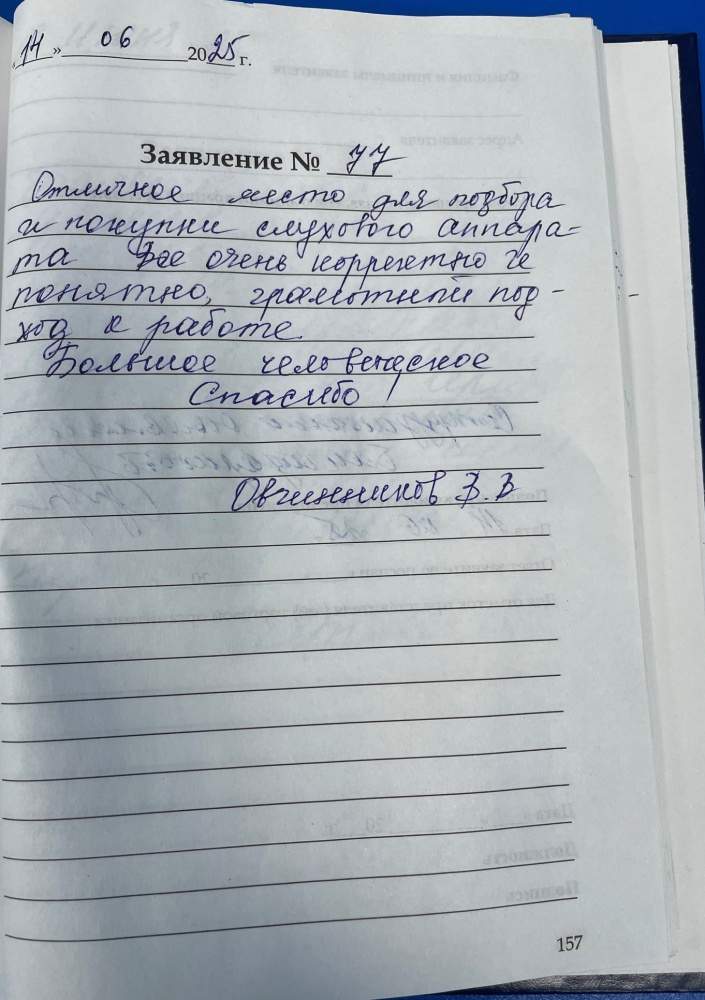 «14» 06 2025 г.
Заявление № 77
Отличное место для подбора
и покупки слухового аппара-
та Все очень корректно и
понятно, грамотный под-
ход к работе.
Большое человеческое
Спасибо!
Овчинников В.В
157